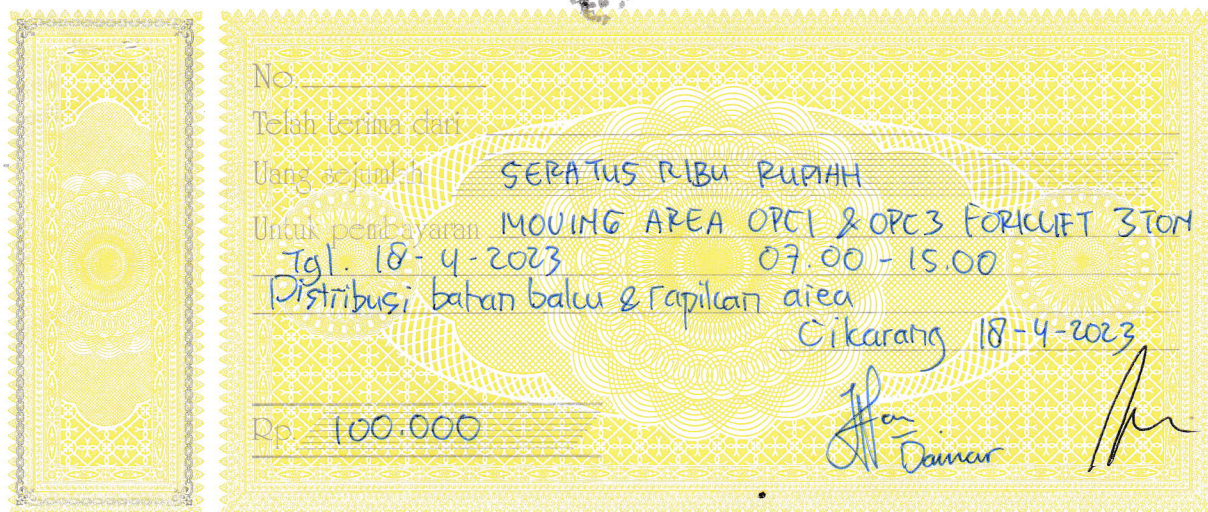 No.
Telah terima dari
Uang sejumlah SERATUS RIBU RUPIAH
Untuk pembayaran MOVING AREA OPC1 & OPC3 FORKLIFT 3TON
Tgl. 18-4-2023 07.00 - 15.00
Distribusi bahan baku & rapikan area
Cikarang 18-4-2023
Rp. 100.000
Damar